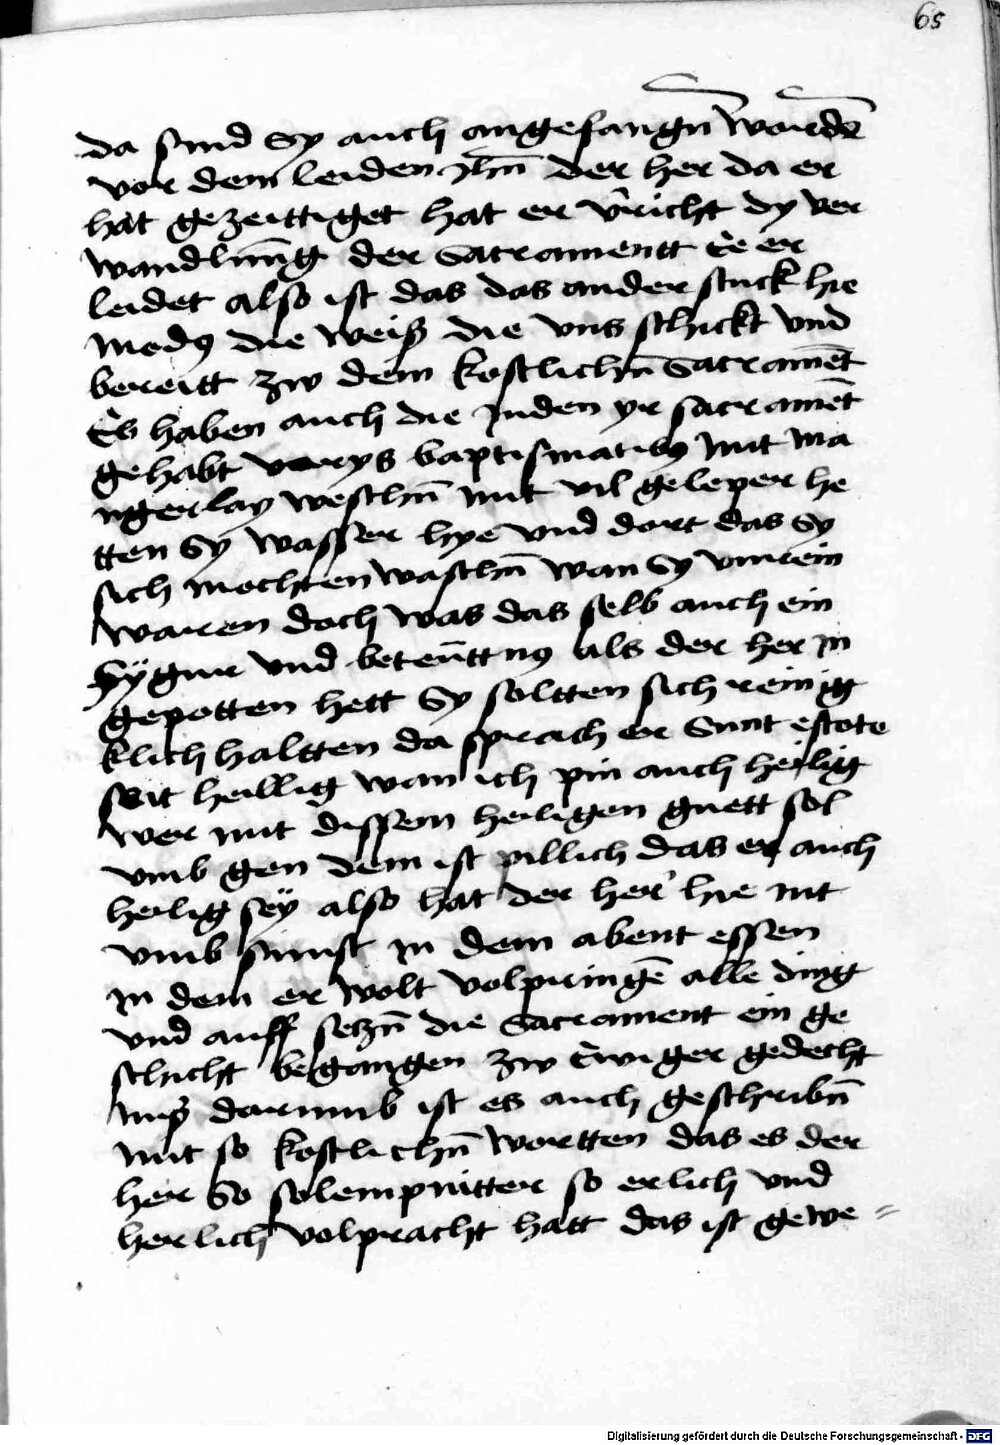 65
da sind Sy auch angefangn̄ wordē
vor dem leiden Ihū der her da er
hat gezeittiget hat er v̄richt dy ver
wandlung der Sacramentt Ee er
leidet also ist das das ander stuck hie
modꝰ die weiß die vns schickt vnd
bereitt zw dem kostlichn̄ Sacramēt
Es haben auch die Juden yr sacramēt
gehabt varys baptismatibꝰ mit ma
ngerlay weschn̄ mit vil geleper he
tten Sy wasser hye vnd dort das Sy
sich mochten waschn̄ wan Sy vnrein
waren doch was das selb auch ein
Fygur vnd betēuttnꝰ als der her in
gepotten hett Sy soltten sich reinig
klich haltten da sprach er Sunt estote
seit heillig wan ich pin auch heilig
wer mit dissem heiligen guett sol
vmb gen dem ist pillich das er auch
heilig sey also hat der her hie nit
vmb sunst in dem abent essen
in dem er wolt volpringē alle ding
vnd auff seczn̄ die Sacrament ein ge
schicht begangen zw Ewiger gedecht
nuß darumb ist es auch geschribn̄
mit so kostlichn̄ wortten das es der
her So solempnitter so erlich vnd
herlich volpracht hatt das ist gewe =
Digitalisierung gefördert durch die Deutsche Forschungsgemeinschaft - DFG